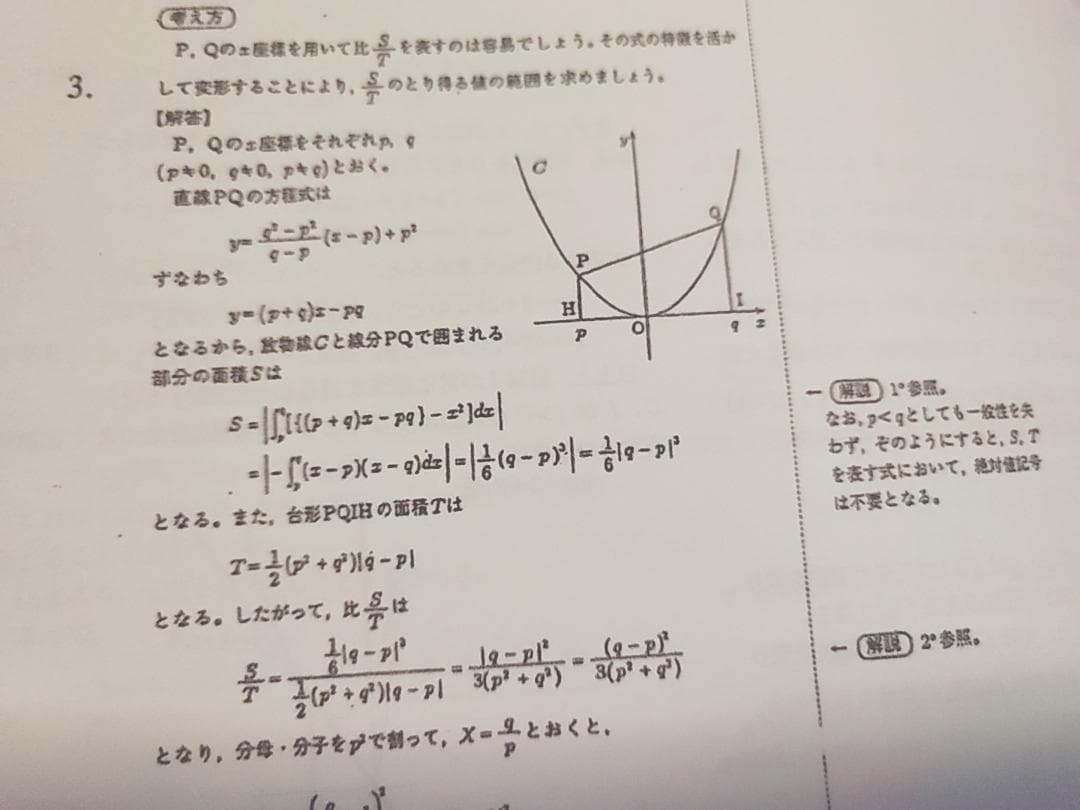 考え方
P，Qのx座標を用いて比 S/T を表すのは容易でしょう。その式の特徴を活か
3.
して変形することにより，S/T のとり得る値の範囲を求めましょう。
【解答】
P，Qのx座標をそれぞれp，q
(p≠0，q≠0，p≠q)とおく。
直線PQの方程式は
y=(q²−p²)/(q−p) (x−p)+p²
すなわち
y=(p+q)x−pq
となるから，放物線Cと線分PQで囲まれる
部分の面積Sは
y
C
Q
P
H
I
p
O
q
x
S=|∫ₚ^q[{(p+q)x−pq}−x²]dx|
=|−∫ₚ^q(x−p)(x−q)dx|=|1/6 (q−p)³|=1/6 |q−p|³
となる。また，台形PQIHの面積Tは
T=1/2 (p²+q²)|q−p|
となる。したがって，比 S/T は
S/T = (1/6 |q−p|³)/(1/2 (p²+q²)|q−p|) = |q−p|²/3(p²+q²) = (q−p)²/3(p²+q²)
となり，分母・分子をp²で割って，X=q/p とおくと，
← 解説 1°参照。
なお，p<qとしても一般性を失
わず，そのようにすると，S，T
を表す式において，絶対値記号
は不要となる。
← 解説 2°参照。